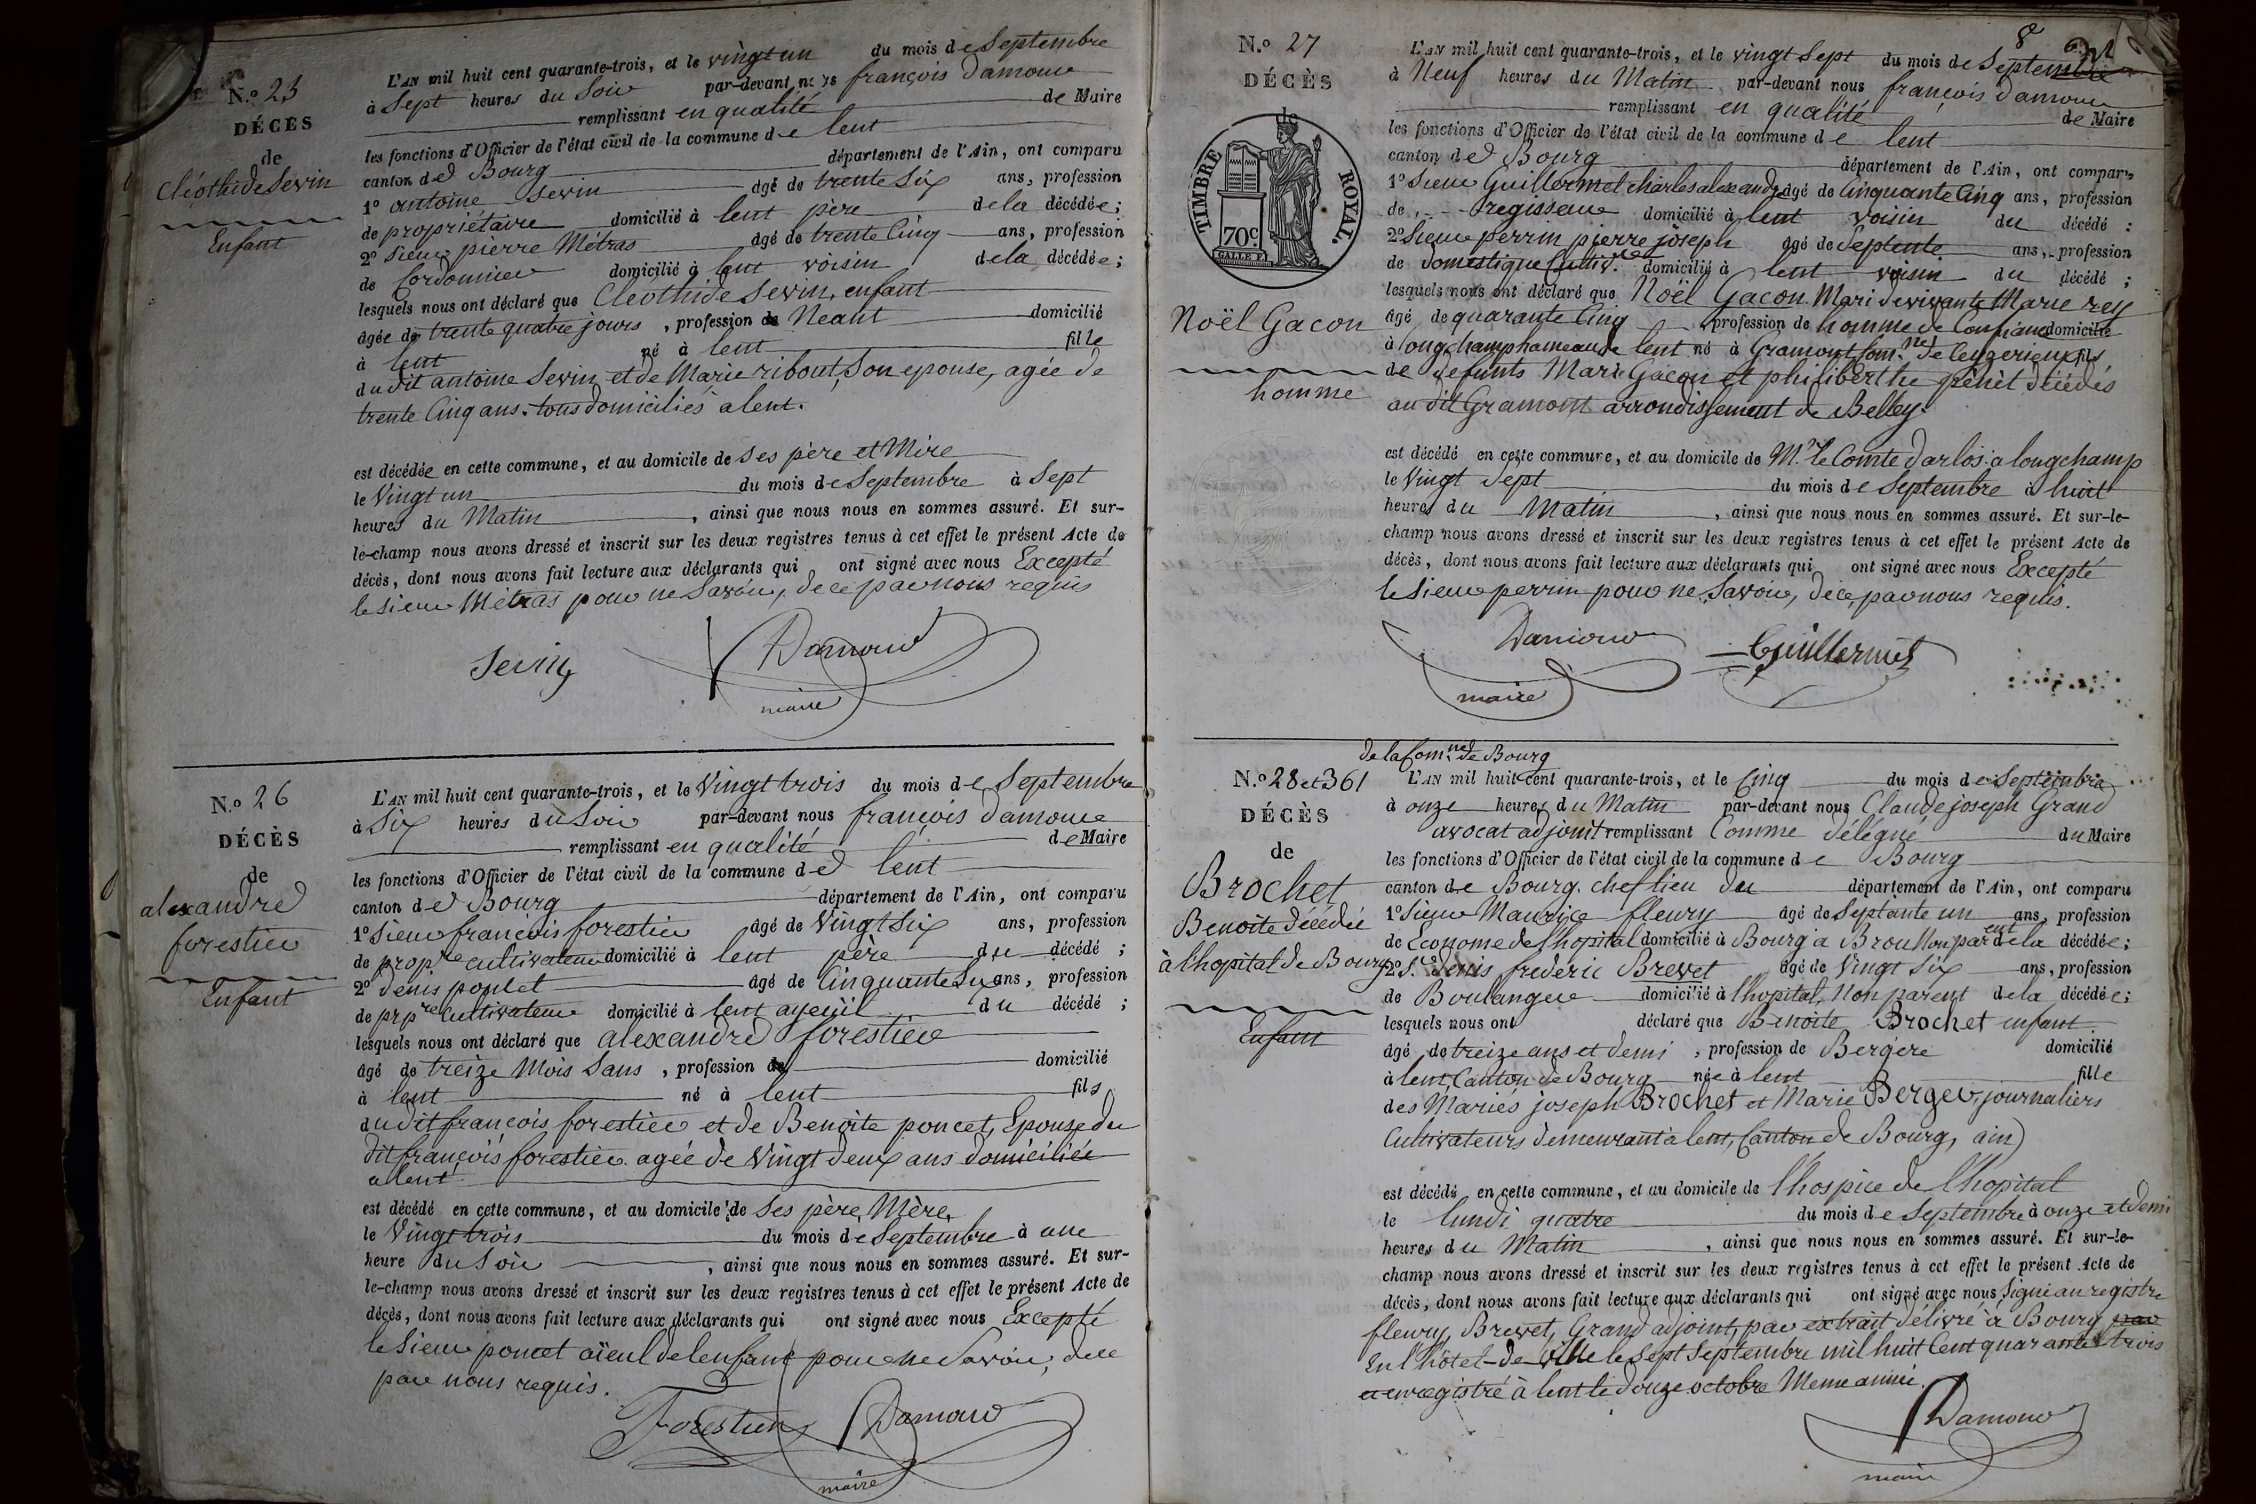 N.º 25
DÉCÈS
de
Cléothide Sevin
Enfant
L'AN mil huit cent quarante-trois, et le vingt un du mois de Septembre
à Sept heures du Soir par-devant nous françois Damour
remplissant en qualité de Maire
les fonctions d'Officier de l'état civil de la commune de lent
canton de Bourg département de l'Ain, ont comparu
1º antoine Sevin agé de trente Six ans, profession
de propriétaire domicilié à lent père de la décédée ;
2º Sieur pierre Métras agé de trente Cinq ans, profession
de Cordonnier domicilié à lent voisin de la décédée ;
lesquels nous ont déclaré que Cléothide Sevin, enfant
agée de trente quatre jours , profession de Neant domicilié
à lent né à lent fille
du dit antoine Sevin et de Marie ribout, Son epouse, agée de
trente Cinq ans. tous domiciliés a lent.
est décédée en cette commune, et au domicile de Ses père et Mère
le Vingt un du mois de Septembre à Sept
heures du Matin , ainsi que nous nous en sommes assuré. Et sur-
le-champ nous avons dressé et inscrit sur les deux registres tenus à cet effet le présent Acte de
décès, dont nous avons fait lecture aux déclarants qui ont signé avec nous Excepté
le Sieur Métras pour ne Savoir, de ce par nous requis
Sevin Damour
maire
N.º 26
DÉCÈS
de
alexandre
forestier
Enfant
L'AN mil huit cent quarante-trois, et le Vingt trois du mois de Septembre
à Six heures du Soir par-devant nous françois Damour
remplissant en qualité de Maire
les fonctions d'Officier de l'état civil de la commune de lent
canton de Bourg département de l'Ain, ont comparu
1º Sieur françois forestier agé de Vingt Six ans, profession
de prop.re cultivateur domicilié à lent père du décédé ;
2º denis poncet agé de Cinquante Six ans, profession
de prp.re Cultivateur domicilié à lent ayeuil du décédé ;
lesquels nous ont déclaré que alexandre forestier
agé de treize Mois Sans , profession de domicilié
à lent né à lent fils
du dit françois forestier et de Benoite poncet, Epouse du
dit françois forestier agée de Vingt deux ans domiciliée
a lent
est décédé en cette commune, et au domicile de Ses père, Mère,
le Vingt trois du mois de Septembre à une
heure du Soir , ainsi que nous nous en sommes assuré. Et sur-
le-champ nous avons dressé et inscrit sur les deux registres tenus à cet effet le présent Acte de
décès, dont nous avons fait lecture aux déclarants qui ont signé avec nous Excepté
le Sieur poncet aïeul de lenfant pour ne Savoir, de ce
par nous requis.
Forestier Damour
maire
8
N.º 27
DÉCÈS
de
TIMBRE ROYAL.
70c.
Noël Gacon
homme
L'AN mil huit cent quarante-trois, et le vingt Sept du mois de Septembre
à Neuf heures du Matin par-devant nous françois Damour
remplissant en qualité de Maire
les fonctions d'Officier de l'état civil de la commune de lent
canton de Bourg département de l'Ain, ont comparu
1º Sieur Guillermet charles alexandre agé de Cinquante Cinq ans, profession
de regisseur domicilié à lent voisin du décédé ;
2º Sieur perrin pierre joseph agé de Septente ans, profession
de domestique Cultiv.r domicilié à lent voisin du décédé ;
lesquels nous ont déclaré que Noël Gacon Mari de vivante Marie rey
agé de quarante Cinq , profession de homme de Confiance domicilié
à longchamp hameau de lent né à Gramont Com.ne de Ceyzerieux fils
de defunts Marie Gacon et philiberthe décédés
au dit Gramont arrondissement de Belley.
est décédé en cette commune, et au domicile de M.r le Comte Darlos a longchamp
le Vingt Sept du mois de Septembre à huit
heures du Matin , ainsi que nous nous en sommes assuré. Et sur-le-
champ nous avons dressé et inscrit sur les deux registres tenus à cet effet le présent Acte de
décès, dont nous avons fait lecture aux déclarants qui ont signé avec nous Excepté
le Sieur perrin pour ne Savoir, de ce par nous requis.
Damour Guillermet
maire
de la Com.ne de Bourg
N.º 28 et 361
DÉCÈS
de
Brochet
Benoite décédée
à lhopital de Bourg
Enfant
L'AN mil huit cent quarante-trois, et le Cinq du mois de Septembre
à onze heures du Matin par-devant nous Claude joseph Grand
avocat adjoint remplissant Comme délégué du Maire
les fonctions d'Officier de l'état civil de la commune de Bourg
canton de Bourg. chef lieu du département de l'Ain, ont comparu
1º Sieur Maurice fleury agé de Septante un ans, profession
de Econome de lhopital domicilié à Bourg a Brou Non parent de la décédée ;
2º S.r denis frederic Brevet agé de Vingt Six ans, profession
de Boulanger domicilié à lhopital, Non parent de la décédée ;
lesquels nous ont déclaré que Benoite Brochet enfant
agé de treize ans et demi , profession de Bergère domicilié
à lent, Canton de Bourg née à lent fille
des Mariés joseph Brochet et Marie Berger, journaliers
Cultivateurs demeurant à lent, Canton de Bourg, ain)
est décédé en cette commune, et au domicile de l'hospice de l'hopital
le lundi quatre du mois de Septembre à onze et demi
heures du Matin , ainsi que nous nous en sommes assuré. Et sur-le-
champ nous avons dressé et inscrit sur les deux registres tenus à cet effet le présent Acte de
décès, dont nous avons fait lecture aux déclarants qui ont signé avec nous Signé au registre
fleury, Brevet, Grand adjoint, par extrait délivré à Bourg par
En l'hôtel-de-Ville le Sept Septembre mil huit Cent quarante trois
et enregistré à lent le douze octobre Meme année.
Damour
maire